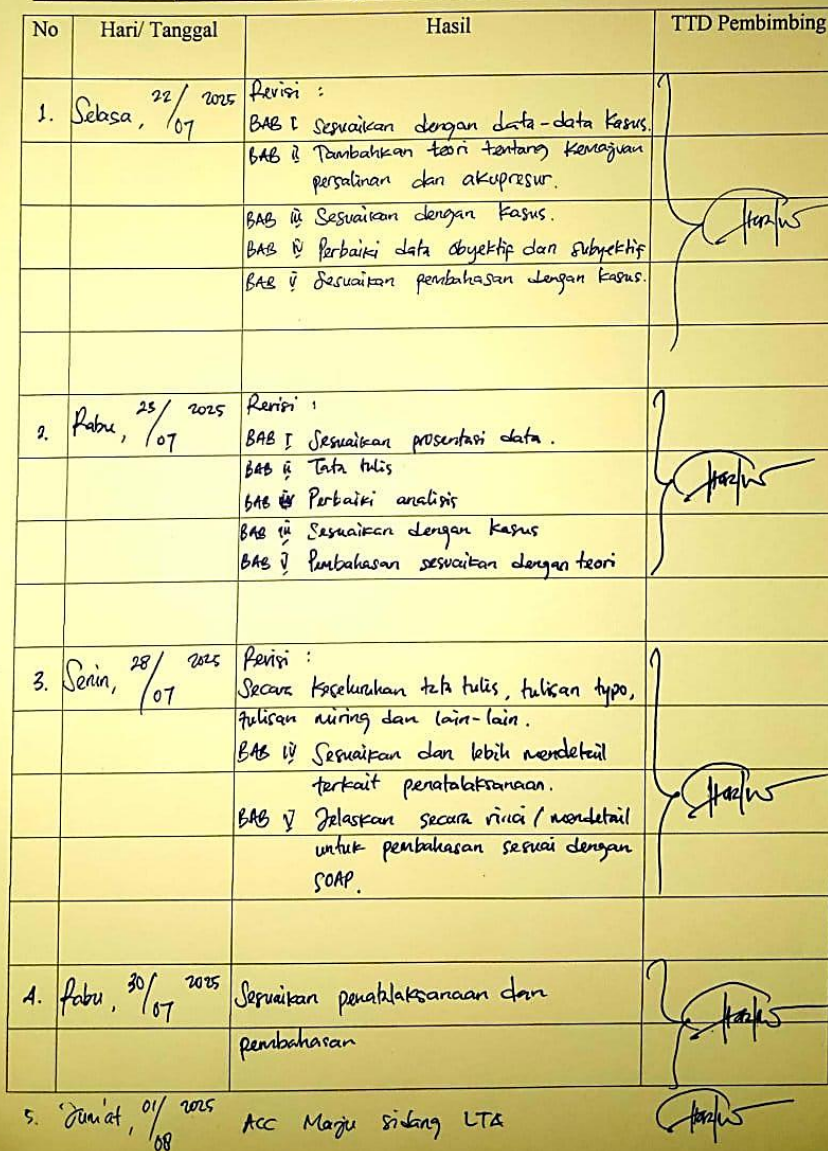 No Hari/ Tanggal Hasil TTD Pembimbing
1. Selasa, 22/07 2025 Revisi :
BAB I Sesuaikan dengan data-data kasus.
BAB II Tambahkan teori tentang Kemajuan
persalinan dan akupresur.
BAB III Sesuaikan dengan kasus.
BAB IV Perbaiki data obyektif dan subyektif
BAB V Sesuaikan pembahasan dengan kasus.
2. Rabu, 23/07 2025 Revisi :
BAB I Sesuaikan prosentasi data.
BAB II Tata tulis
BAB Perbaiki analisis
BAB III Sesuaikan dengan kasus
BAB V Pembahasan sesuaikan dengan teori
3. Senin, 28/07 2025 Revisi :
Secara keseluruhan tata tulis, tulisan typo,
tulisan miring dan lain-lain.
BAB IV Sesuaikan dan lebih mendetail
terkait penatalaksanaan.
BAB V Jelaskan secara rinci / mendetail
untuk pembahasan sesuai dengan
SOAP.
4. Rabu, 30/07 2025 Sesuaikan penatalaksanaan dan
pembahasan
5. Jum'at, 01/08 2025 ACC Maju sidang LTA